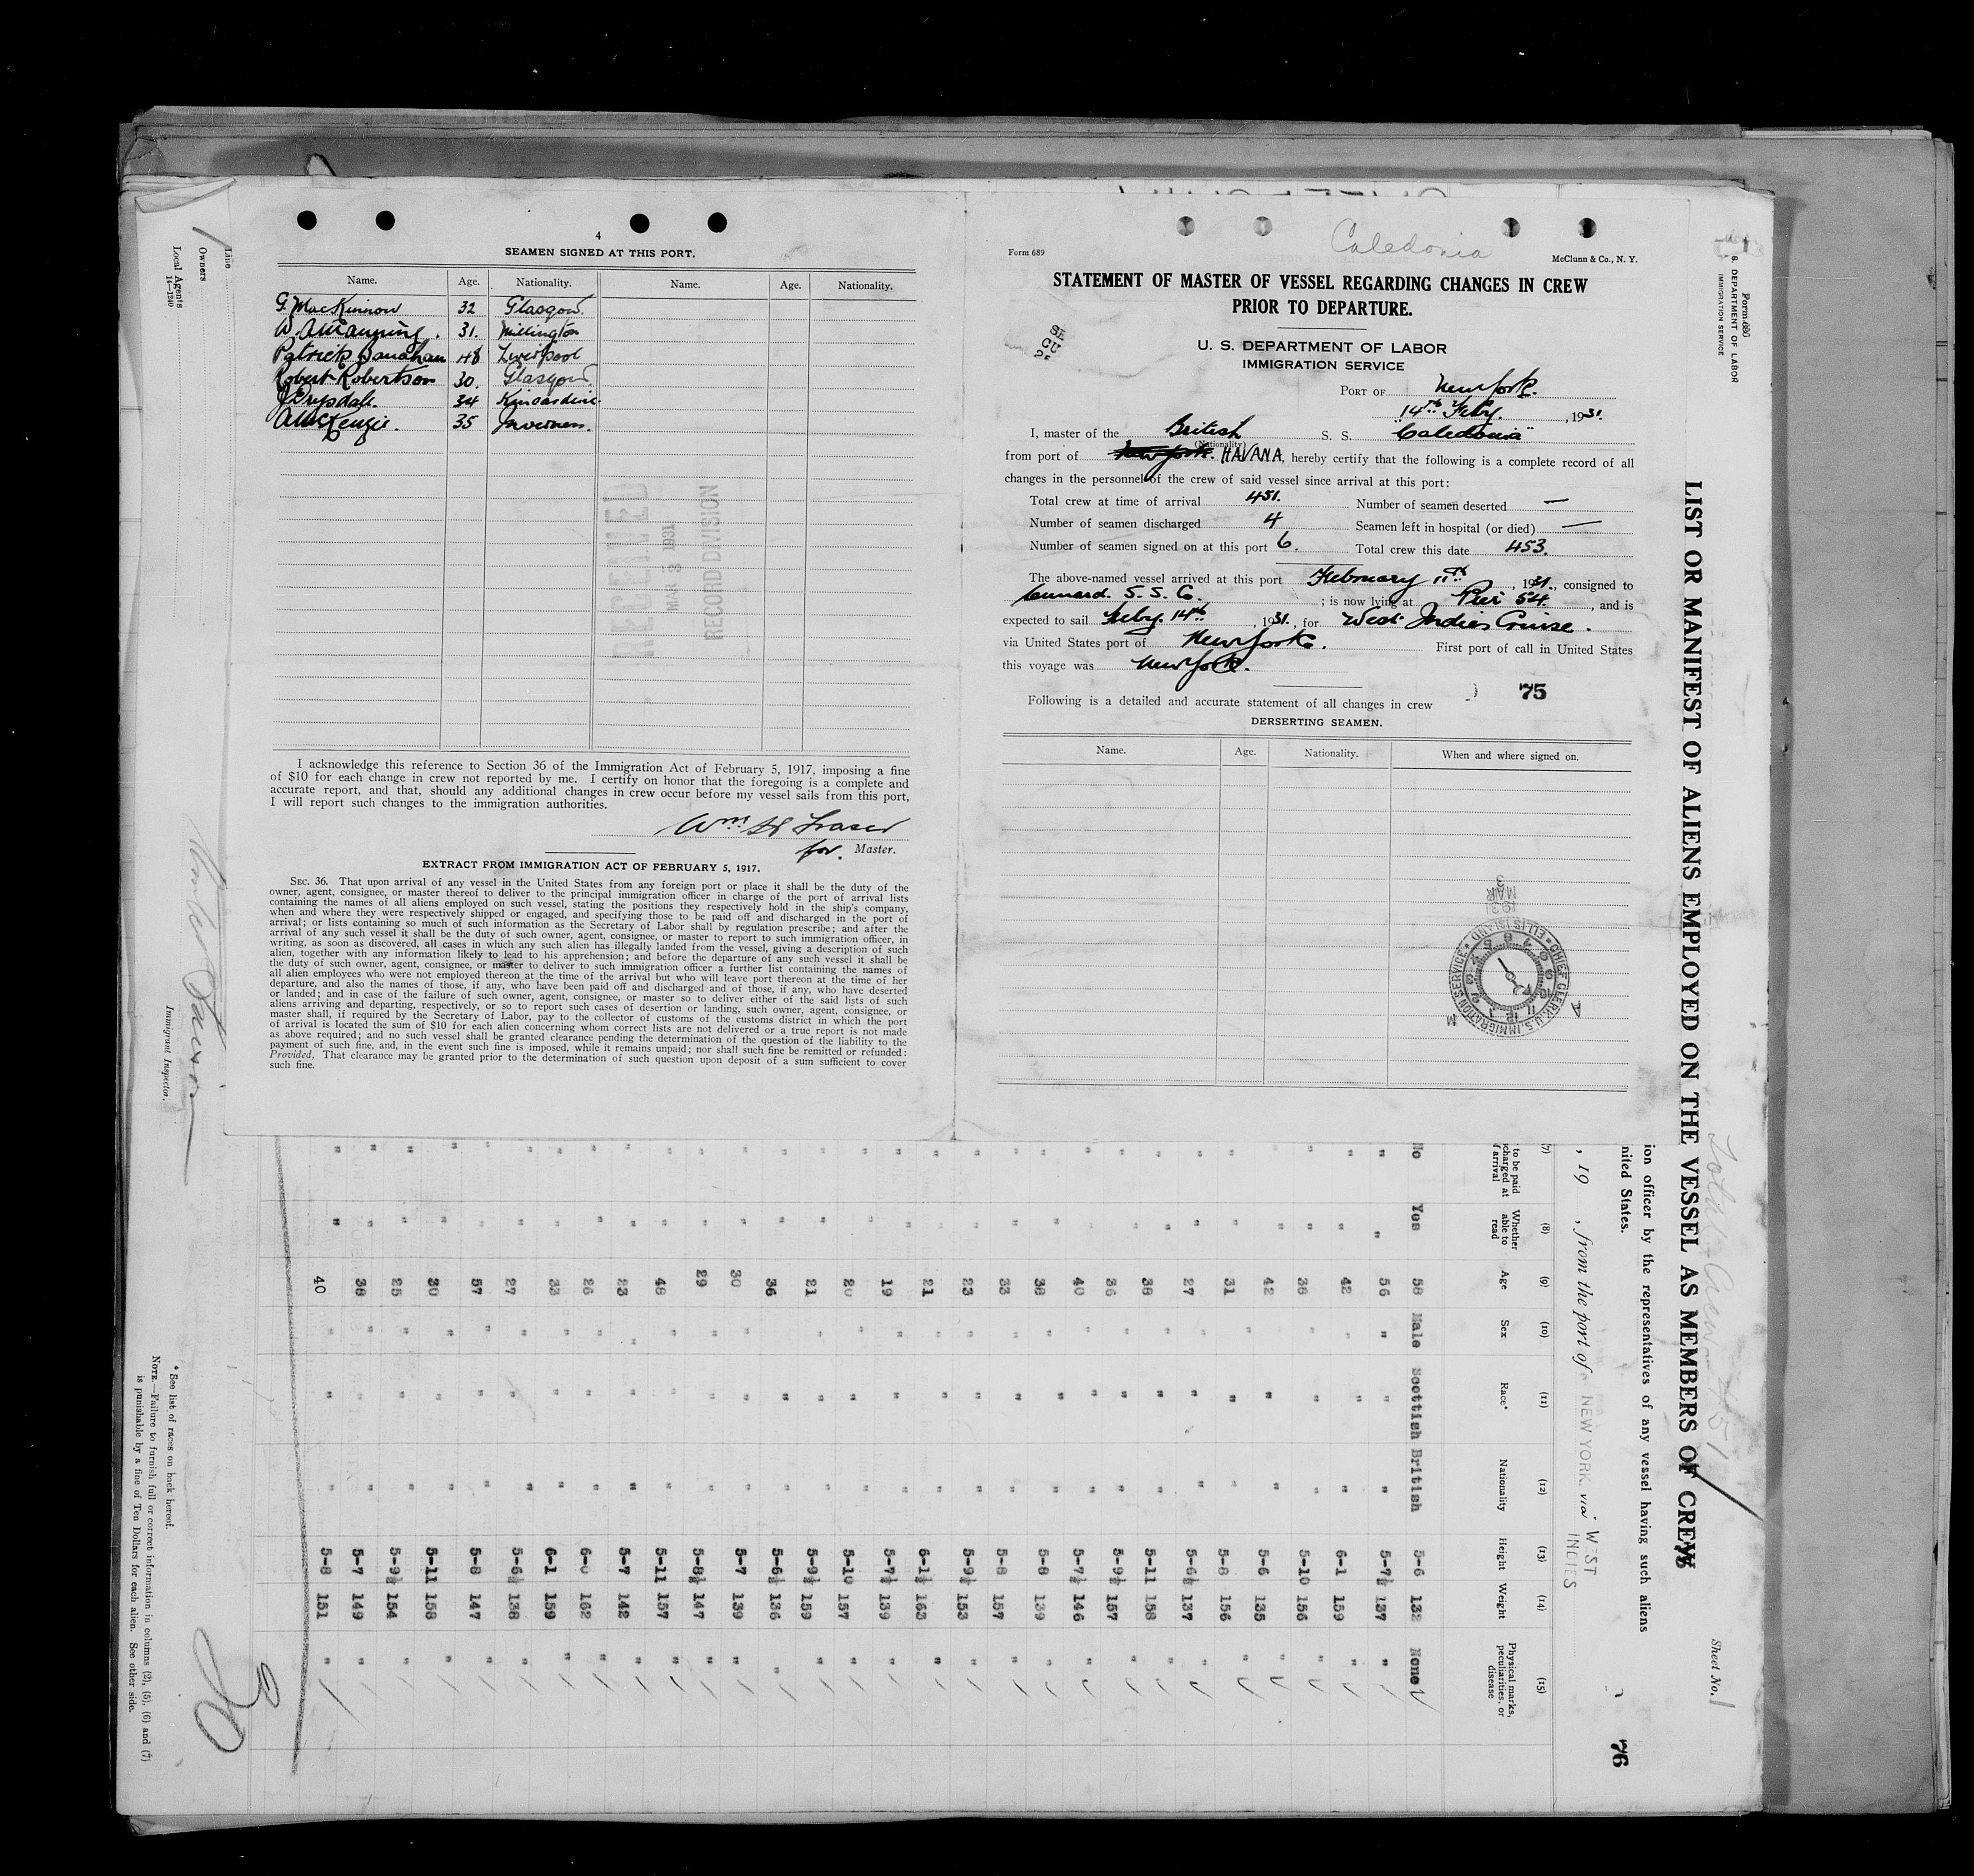 4
SEAMEN SIGNED AT THIS PORT.
Name. Age. Nationality. Name. Age. Nationality.
G. MacKinnon 32 Glasgow.
W. A. Manning. 31. Millington
Patrick 48 Liverpool
Robert Robertson 30. Glasgow.
34 Kincardine.
A. McKenzie. 35 Inverness.
RECEIVED
MAR 3 1931
RECORD DIVISION
I acknowledge this reference to Section 36 of the Immigration Act of February 5, 1917, imposing a fine
of $10 for each change in crew not reported by me. I certify on honor that the foregoing is a complete and
accurate report, and that, should any additional changes in crew occur before my vessel sails from this port,
I will report such changes to the immigration authorities.
Wm. H Fraser
for. Master.
EXTRACT FROM IMMIGRATION ACT OF FEBRUARY 5, 1917.
SEC. 36. That upon arrival of any vessel in the United States from any foreign port or place it shall be the duty of the
owner, agent, consignee, or master thereof to deliver to the principal immigration officer in charge of the port of arrival lists
containing the names of all aliens employed on such vessel, stating the positions they respectively hold in the ship's company,
when and where they were respectively shipped or engaged, and specifying those to be paid off and discharged in the port of
arrival; or lists containing so much of such information as the Secretary of Labor shall by regulation prescribe; and after the
arrival of any such vessel it shall be the duty of such owner, agent, consignee, or master to report to such immigration officer, in
writing, as soon as discovered, all cases in which any such alien has illegally landed from the vessel, giving a description of such
alien, together with any information likely to lead to his apprehension; and before the departure of any such vessel it shall be
the duty of such owner, agent, consignee, or master to deliver to such immigration officer a further list containing the names of
all alien employees who were not employed thereon at the time of the arrival but who will leave port thereon at the time of her
departure, and also the names of those, if any, who have been paid off and discharged and of those, if any, who have deserted
or landed; and in case of the failure of such owner, agent, consignee, or master so to deliver either of the said lists of such
aliens arriving and departing, respectively, or so to report such cases of desertion or landing, such owner, agent, consignee, or
master shall, if required by the Secretary of Labor, pay to the collector of customs of the customs district in which the port
of arrival is located the sum of $10 for each alien concerning whom correct lists are not delivered or a true report is not made
as above required; and no such vessel shall be granted clearance pending the determination of the question of the liability to the
payment of such fine, and, in the event such fine is imposed, while it remains unpaid; nor shall such fine be remitted or refunded:
Provided, That clearance may be granted prior to the determination of such question upon deposit of a sum sufficient to cover
such fine.
Caledonia
Form 689 McClunn & Co., N. Y.
STATEMENT OF MASTER OF VESSEL REGARDING CHANGES IN CREW
PRIOR TO DEPARTURE.
U. S. DEPARTMENT OF LABOR
IMMIGRATION SERVICE
PORT OF New York.
14th Feby. , 1931.
I, master of the British S. S. "Caledonia"
(Nationality)
from port of New York. HAVANA, hereby certify that the following is a complete record of all
changes in the personnel of the crew of said vessel since arrival at this port:
Total crew at time of arrival 451. Number of seamen deserted —
Number of seamen discharged 4 Seamen left in hospital (or died) —
Number of seamen signed on at this port 6. Total crew this date 453.
The above-named vessel arrived at this port February 11th , 1931., consigned to
Cunard. S. S. Co. ; is now lying at Pier 54. , and is
expected to sail Feby. 14th , 1931., for West Indies Cruise.
via United States port of New York. First port of call in United States
this voyage was New York.
75
Following is a detailed and accurate statement of all changes in crew
DERSERTING SEAMEN.
Name. Age. Nationality. When and where signed on.
1931
MAR
3
CHIEF CLERK U.S. IMMIGRATION SERVICE ELLIS ISLAND
Line
Owners
Local Agents
14—1240
Immigrant Inspector.
* See list of races on back hereof.
NOTE.—Failure to furnish full or correct information in columns (2), (5), (6) and (7)
is punishable by a fine of Ten Dollars for each alien. See other side.
30
Form 680
U. S. DEPARTMENT OF LABOR
IMMIGRATION SERVICE
Total Crew 451
Sheet No. 1
LIST OR MANIFEST OF ALIENS EMPLOYED ON THE VESSEL AS MEMBERS OF CREW
ion officer by the representatives of any vessel having such aliens
nited States.
76
, 19 , from the port of NEW YORK via WEST INDIES
(7) (8) (9) (10) (11) (12) (13) (14) (15)
to be paid
charged at
f arrival
Whether able to read
Age
Sex
Race*
Nationality
Height
Weight
Physical marks, peculiarities, or disease
No Yes 58 Male Scottish British 5-6 132 None
" " 56 " " " 5-7½ 137 "
" " 42 " " " 6-1 159 "
" " 38 " " " 5-10 156 "
" " 42 " " " 5-6 135 "
" " 31 " " " 5-8 156 "
" " 27 " " " 5-6½ 137 "
" " 38 " " " 5-11 158 "
" " 36 " " " 5-9½ 157 "
" " 40 " " " 5-7½ 146 "
" " 38 " " " 5-8 139 "
" " 33 " " " 5-8 157 "
" " 23 " " " 5-9½ 153 "
" " 21 " " " 6-1½ 163 "
" " 19 " " " 5-7½ 139 "
" " 20 " " " 5-10 157 "
" " 21 " " " 5-9½ 159 "
" " 36 " " " 5-6½ 136 "
" " 30 " " " 5-7 139 "
" " 29 " " " 5-8½ 147 "
" " 48 " " " 5-11 157 "
" " 23 " " " 5-7 142 "
" " 26 " " " 6-0 162 "
" " 33 " " " 6-1 159 "
" " 27 " " " 5-6½ 138 "
" " 57 " " " 5-8 147 "
" " 30 " " " 5-11 158 "
" " 25 " " " 5-9½ 154 "
" " 38 " " " 5-7 149 "
" " 40 " " " 5-8 151 "